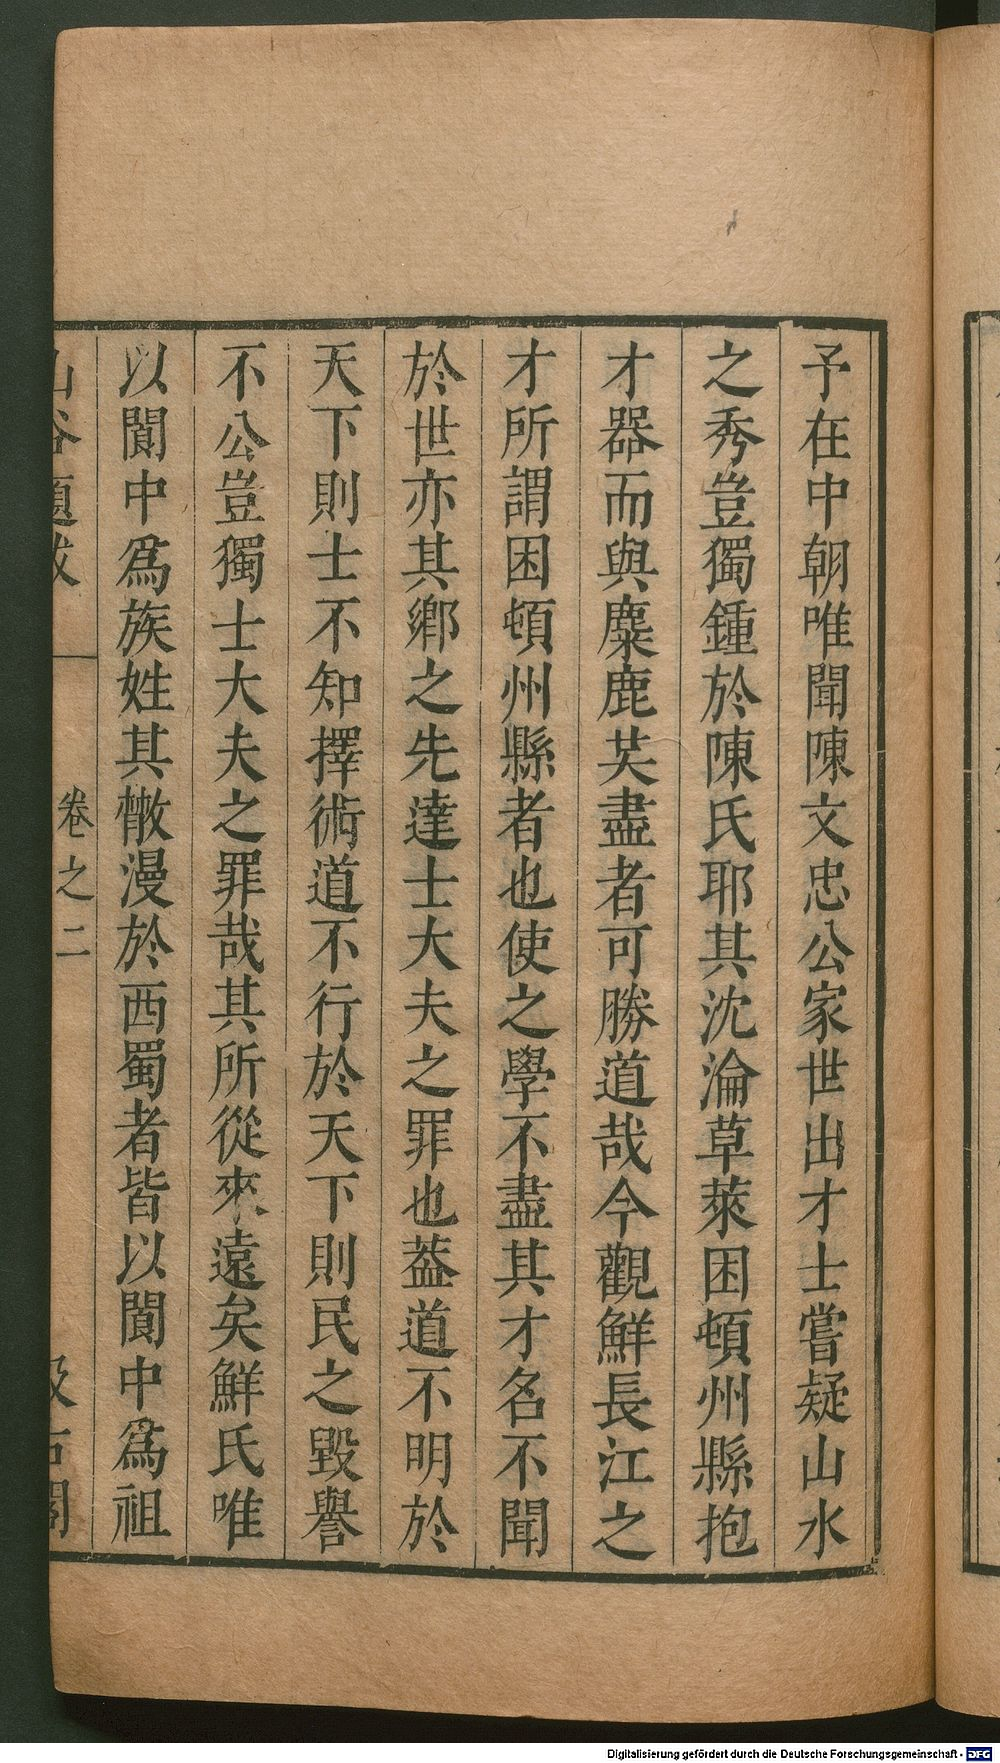 予在中朝唯聞陳文忠公家世出才士嘗疑山水
之秀豈獨鍾於陳氏耶其沈淪草萊困頓州縣抱
才器而與麋鹿共盡者可勝道哉今觀鮮長江之
才所謂困頓州縣者也使之學不盡其才名不聞
於世亦其鄉之先達士大夫之罪也葢道不明於
天下則士不知擇術道不行於天下則民之毀譽
不公豈獨士大夫之罪哉其所從來遠矣鮮氏唯
以閬中爲族姓其㪚漫於西蜀者皆以閬中爲祖
山谷題跋 卷之二 汲古閣
Digitalisierung gefördert durch die Deutsche Forschungsgemeinschaft - DFG